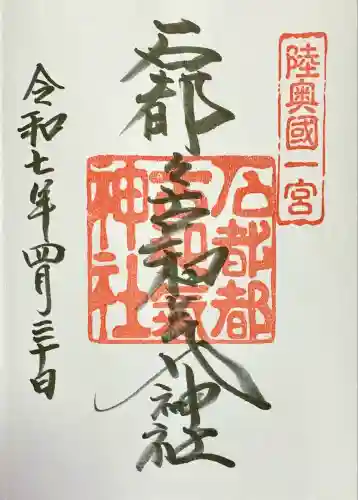 陸奥國一宮
石都々古和気神社
石都都
古和氣
神社
令和七年四月三十日